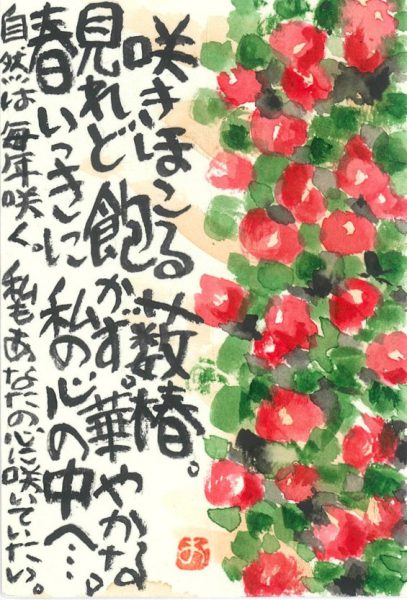 咲きほこる薮椿。
見れど飽かず。華やかな
春いっきに私の心の中へ…
自然は毎年咲く。私もあなたの心に咲いていたい。